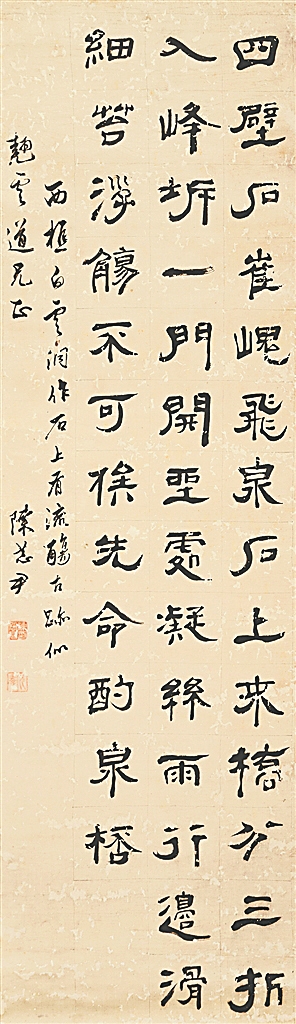 四壁石崔嵬飛泉石上來橋分三折
入峰坼一門開坐處凝絲雨行邊滑
細苔流觴不可俟先命酌泉桮
西樵白雲洞作石上有流觴古跡似
雲道兄正
陳恭尹